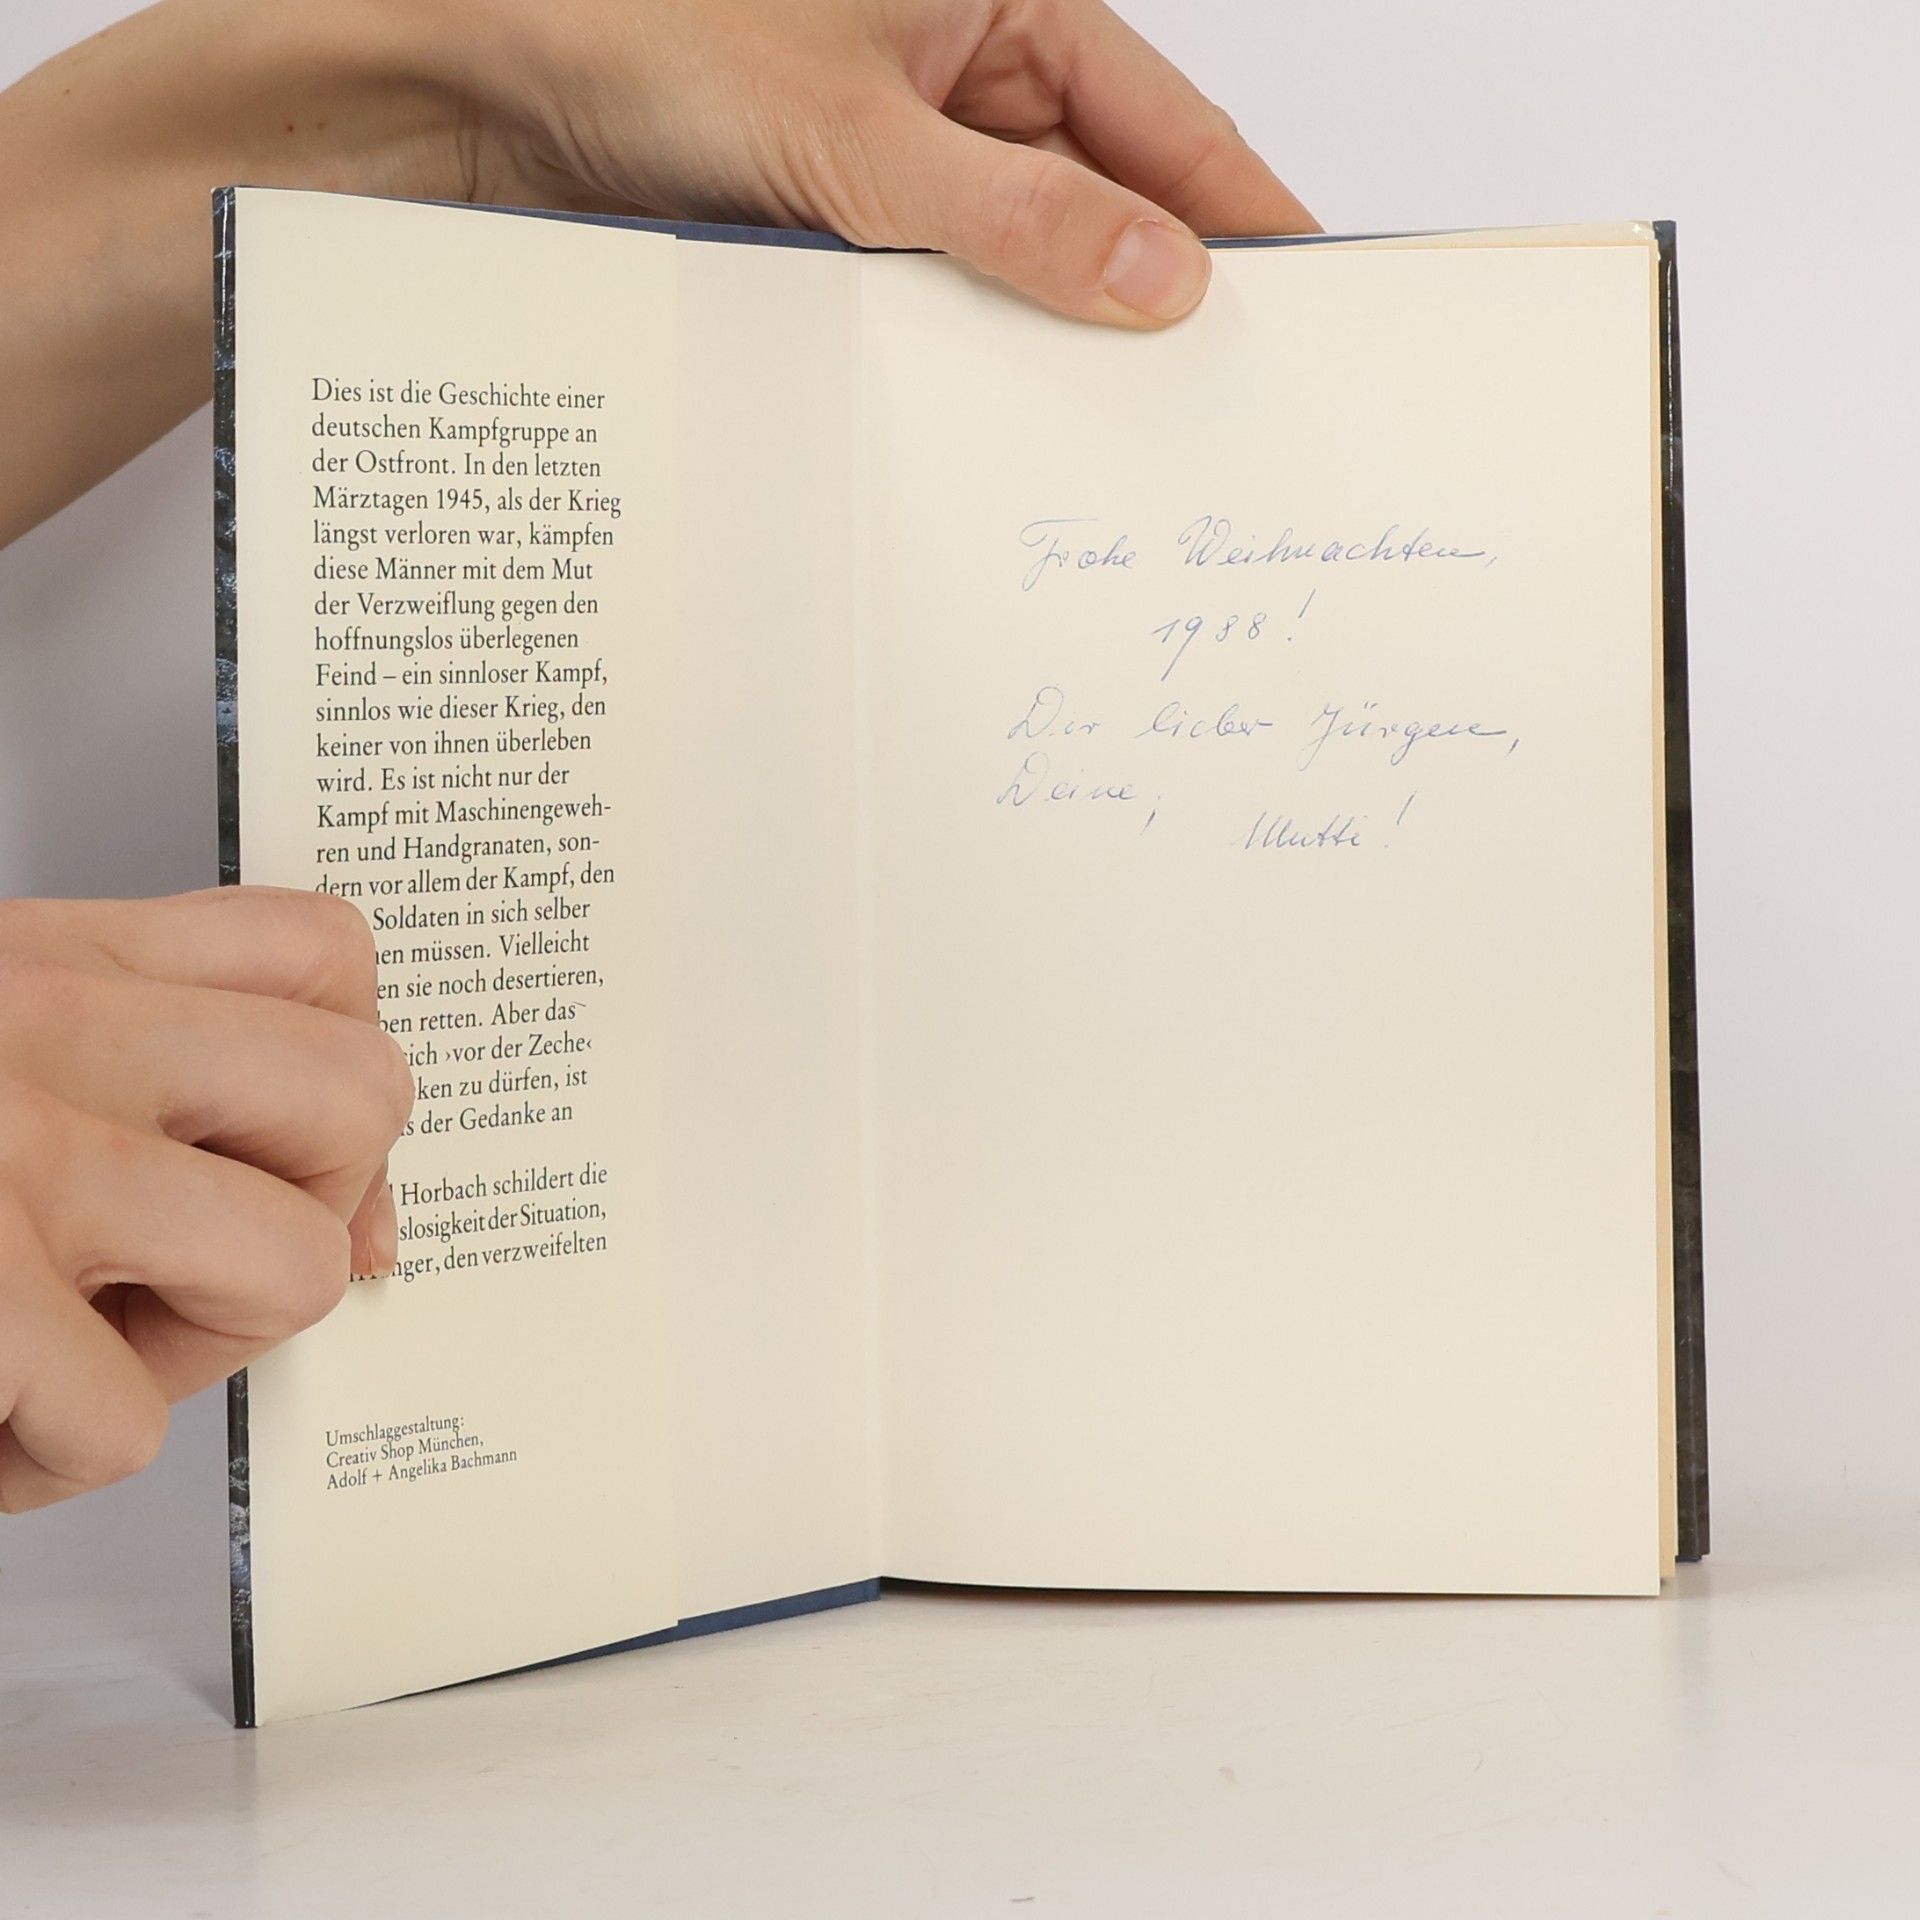 Dies ist die Geschichte einer
deutschen Kampfgruppe an
der Ostfront. In den letzten
Märztagen 1945, als der Krieg
längst verloren war, kämpfen
diese Männer mit dem Mut
der Verzweiflung gegen den
hoffnungslos überlegenen
Feind – ein sinnloser Kampf,
sinnlos wie dieser Krieg, den
keiner von ihnen überleben
wird. Es ist nicht nur der
Kampf mit Maschinengeweh-
ren und Handgranaten, son-
dern vor allem der Kampf, den
Soldaten in sich selber
müssen. Vielleicht
sie noch desertieren,
retten. Aber das
sich ›vor der Zeche‹
zu dürfen, ist
der Gedanke an
Horbach schildert die
der Situation,
den verzweifelten
Umschlaggestaltung:
Creativ Shop München,
Adolf + Angelika Bachmann
Frohe Weihnachten,
1988!
Dir lieber Jürgen,
Deine,
Mutti!